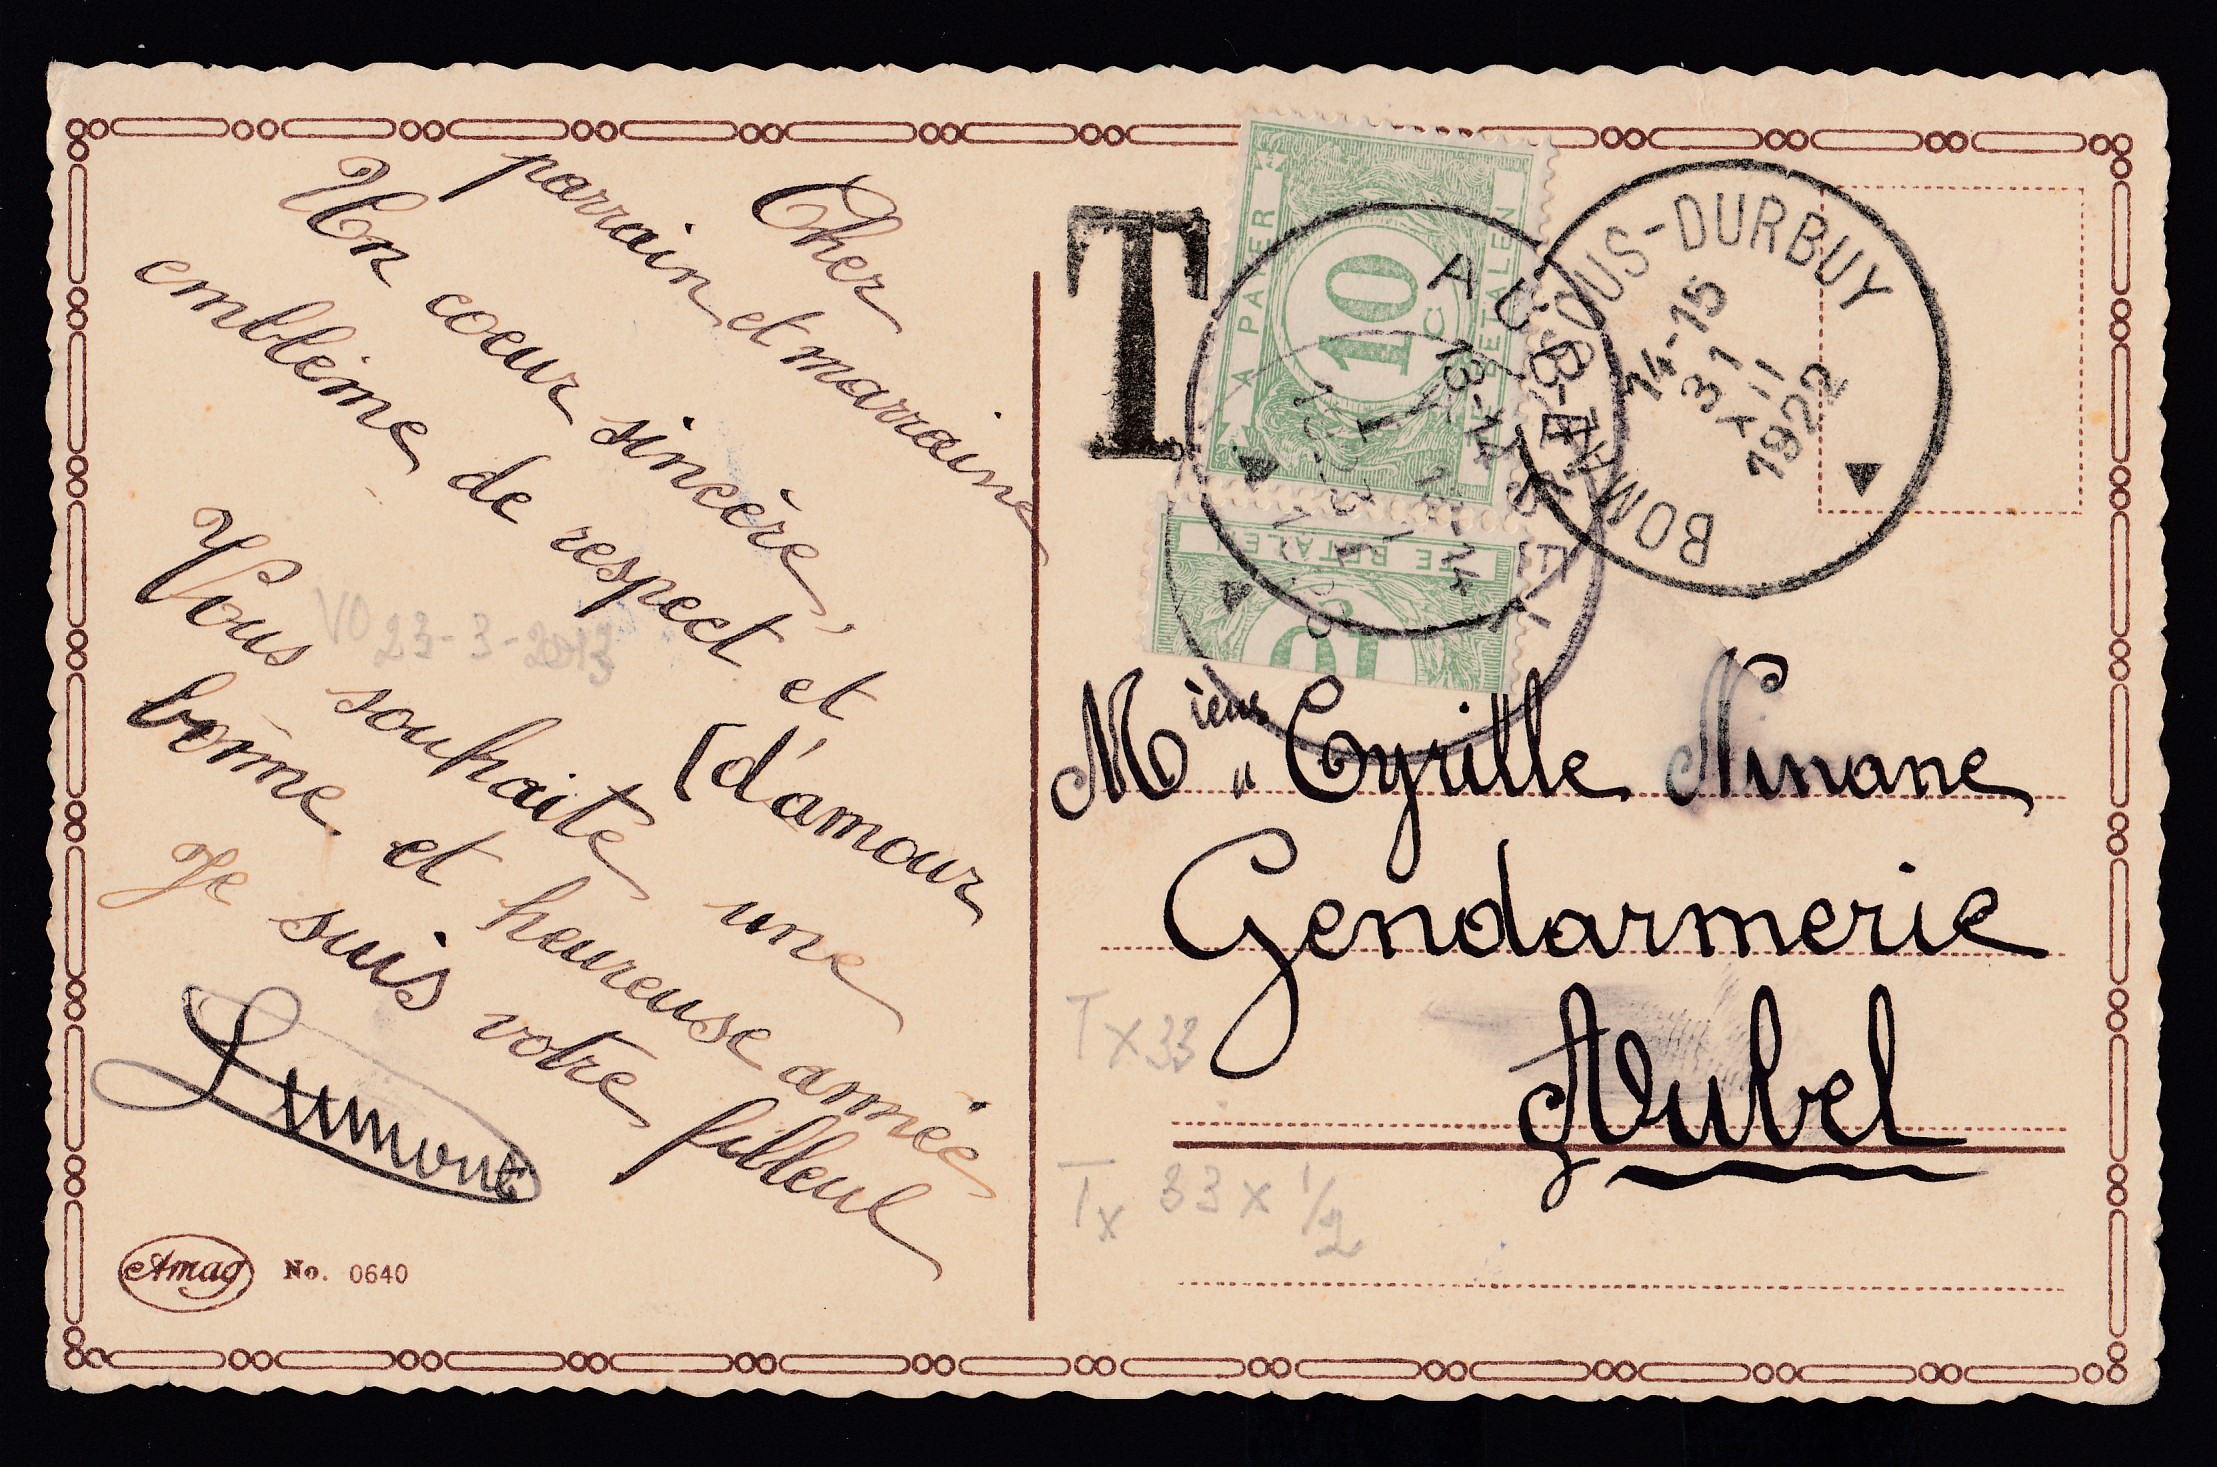 Cher
parrain et marraine
Un coeur sincère,
emblème de respect et
[d'amour
Vous souhaite une
bonne et heureuse année
Je suis votre filleul
Amag No. 0640
T
A PAYER
10
C
TE BETALEN
TE BETALEN
AUBEL
18-14
1
18-14
BOMAL-SOUS-DURBUY
14-15
31
XII
1922
Cyrille Ninane
Gendarmerie
Aubel
VO 23-3-2013
Tx 33
Tx 33 x 1/2